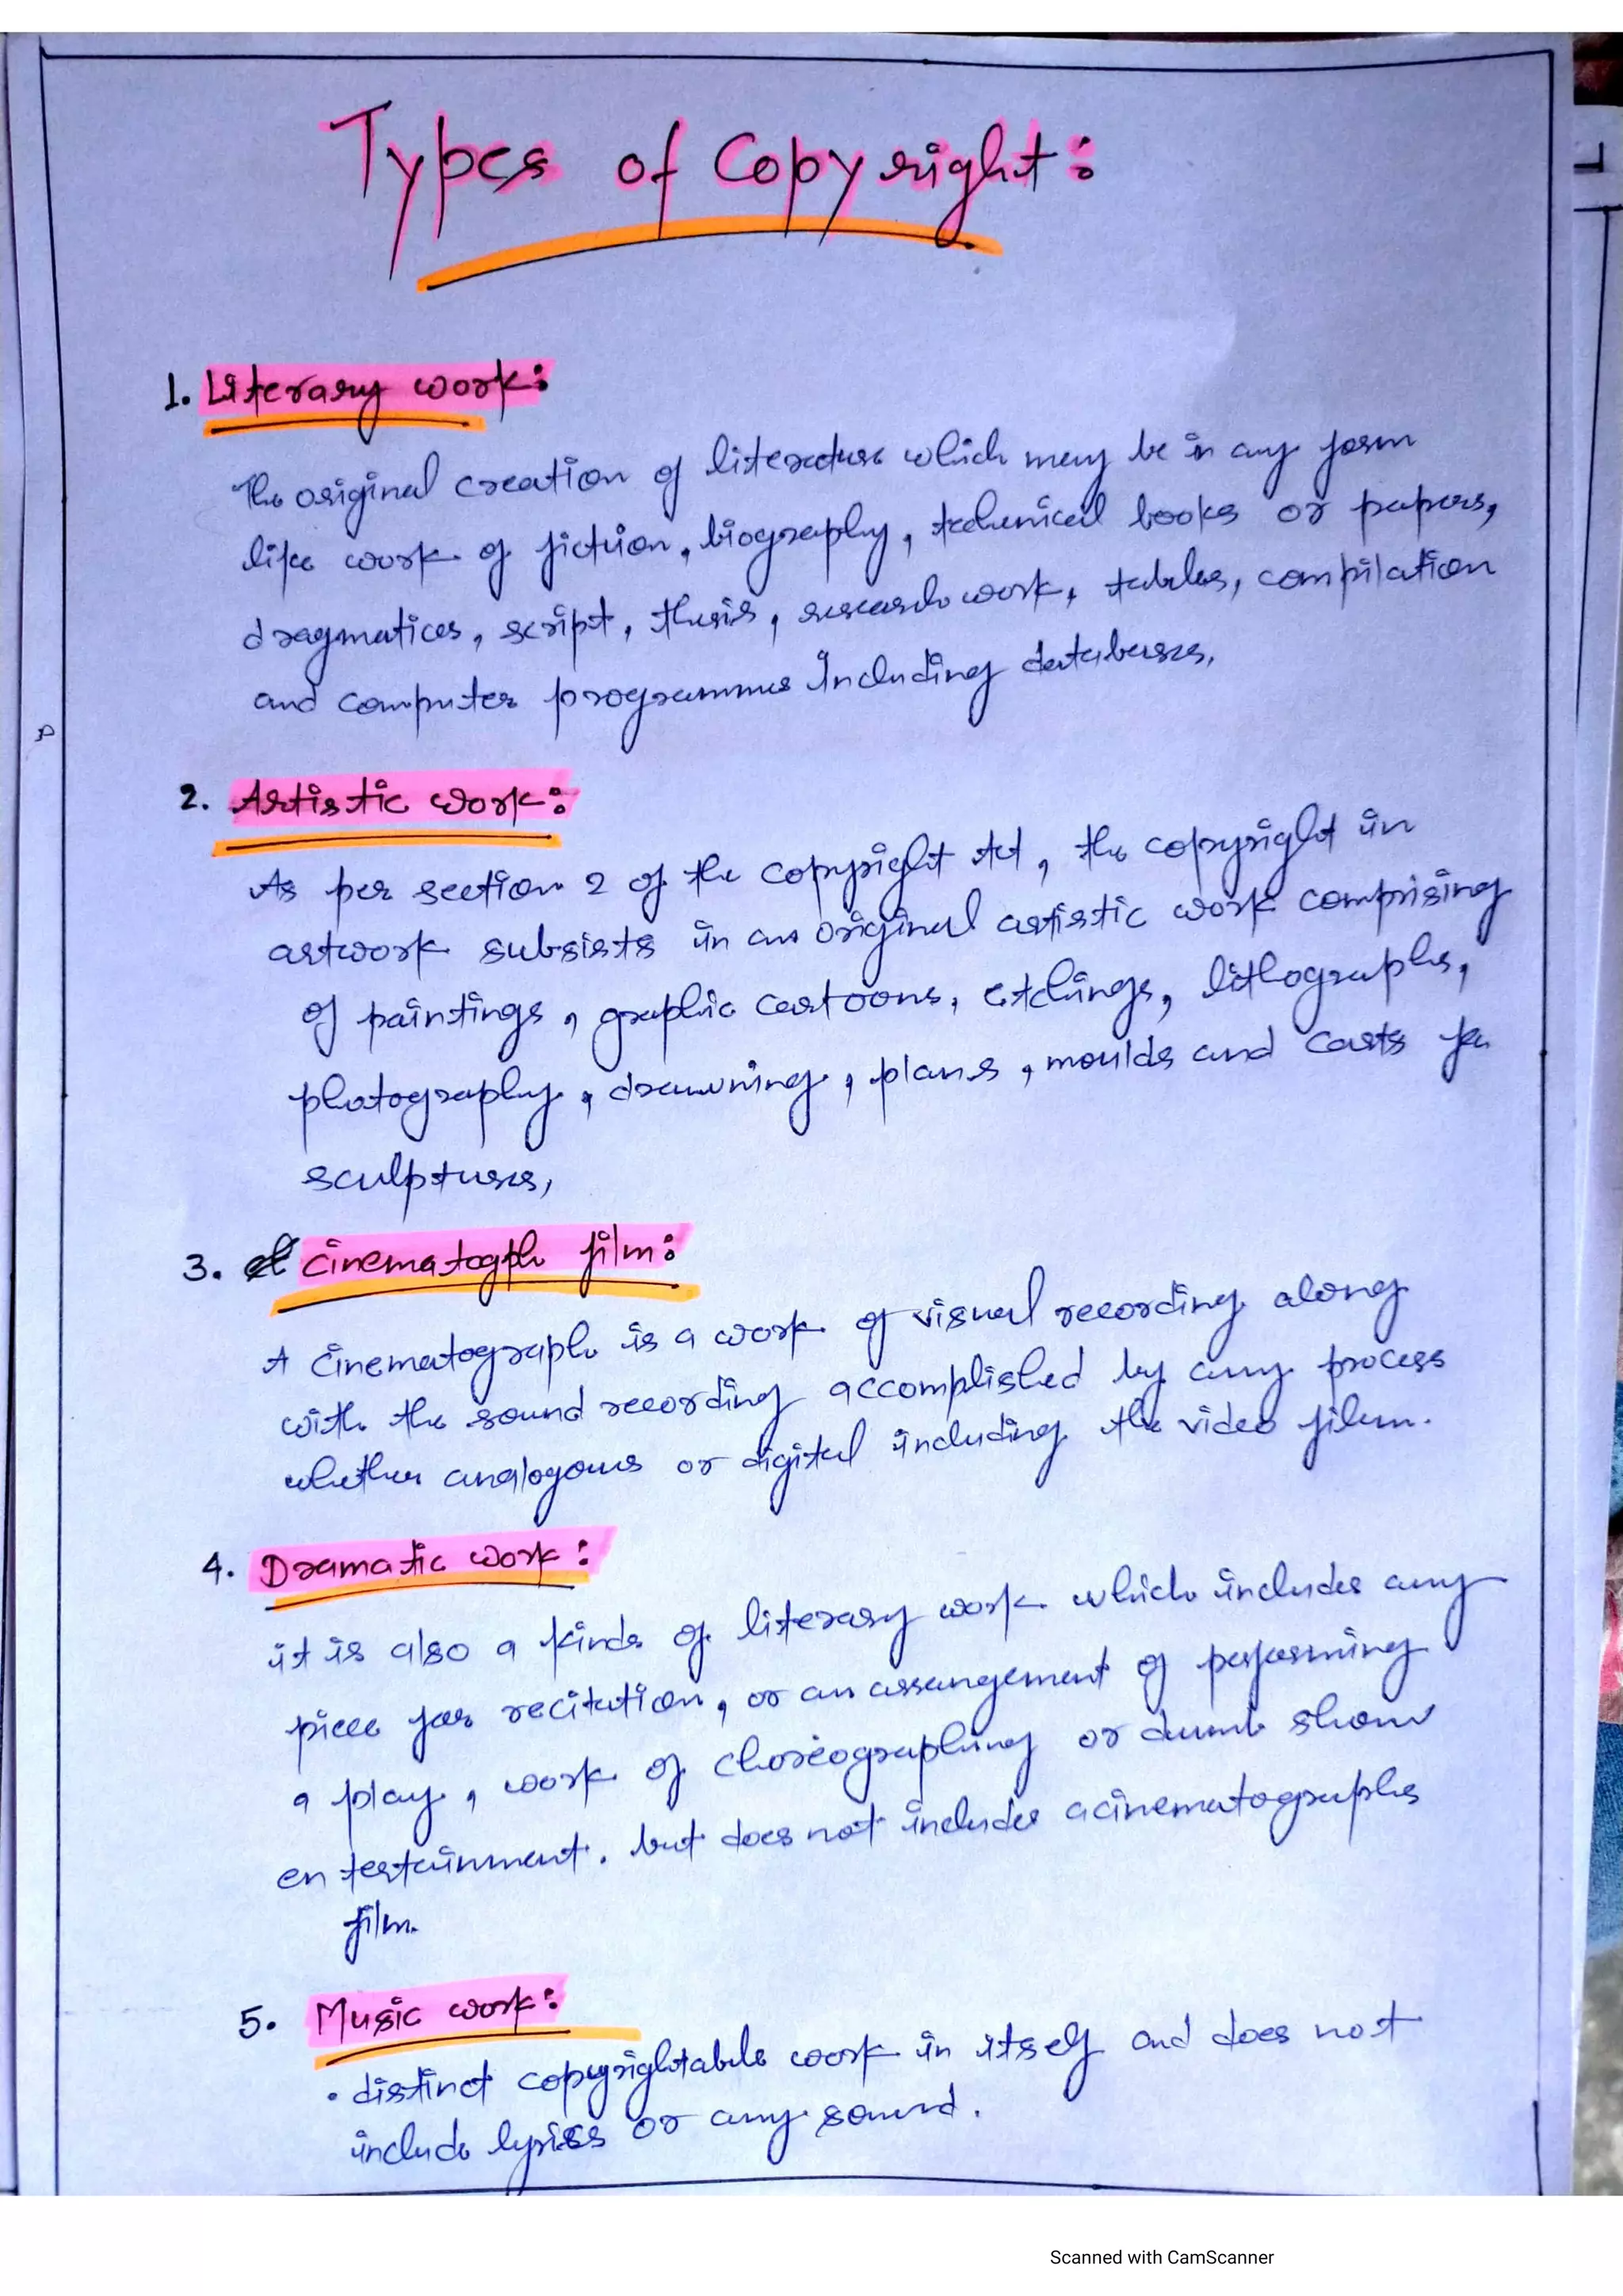 Types of Copyright:
1. Literary work:
The original creation of literature which may be in any form
like work of fiction, biography, technical books or papers,
dragmatices, script, thesis, research work, tables, compilation
and computer programmes Including databases,
2. Artistic work:
As per section 2 of the copyright Act, the copyright in
artwork subsists in an original artistic work comprising
of paintings, graphic cartoons, etchings, lithographs,
photography, drawning, plans, moulds and casts for
sculptures,
3. cinematogph film:
A cinematograph is a work of visual recording along
with the sound recording accomplished by any process
whether analogous or digital including the video film.
4. Dramatic work:
it is also a kinds of literary work which includes any
piece for recitation, or an arrangement of performing
a play, work of choreographing or dumb show
entertainment. but does not includes a cinematographs
film.
5. Music work:
• distinct copyrightable work in itself and does not
include lyrics or any sound.
Scanned with CamScanner